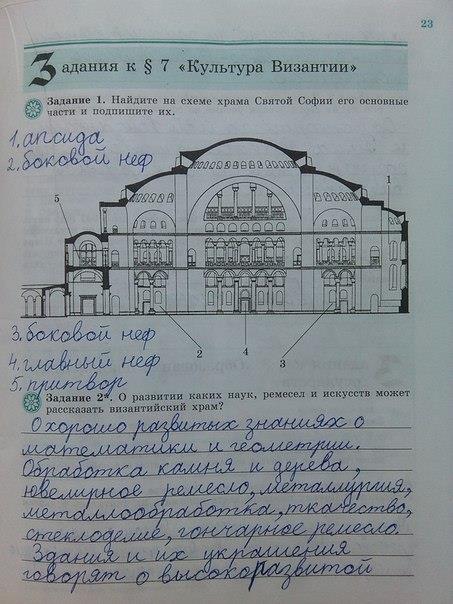 23
Задания к § 7 «Культура Византии»
Задание 1. Найдите на схеме храма Святой Софии его основные
части и подпишите их.
1. апсида
2. боковой неф
1
5
3. боковой неф
2
4
3
4. главный неф
5. притвор
Задание 2*. О развитии каких наук, ремесел и искусств может
рассказать византийский храм?
О хорошо развитых знаниях о
математики и геометрии.
Обработка камня и дерева,
ювелирное ремесло, металлургия,
металлообработка, ткачество,
стеклоделие, гончарное ремесло.
Здания и их украшения
говорят о высокоразвитой